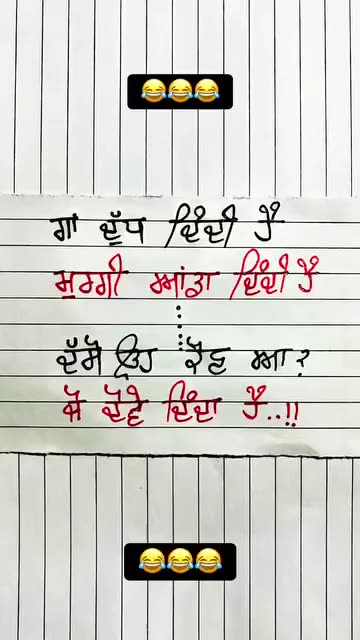 😂😂😂
ਗਾਂ ਦੁੱਧ ਦਿੰਦੀ ਹੈ
ਮੁਰਗੀ ਆਂਡਾ ਦਿੰਦੀ ਹੈ
ਦੱਸੋ ਉਹ ਕੌਣ ਆ?
ਜੋ ਦੋਵੇਂ ਦਿੰਦਾ ਹੈ..!!
😂😂😂